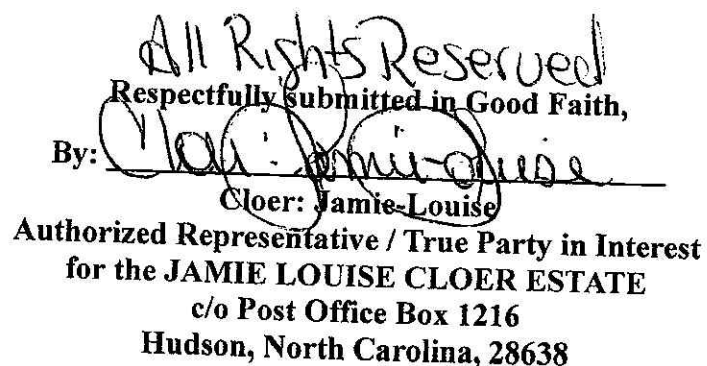 All Rights Reserved
Respectfully submitted in Good Faith,
By: Cloer: Jamie-Louise
Cloer: Jamie-Louise
Authorized Representative / True Party in Interest
for the JAMIE LOUISE CLOER ESTATE
c/o Post Office Box 1216
Hudson, North Carolina, 28638